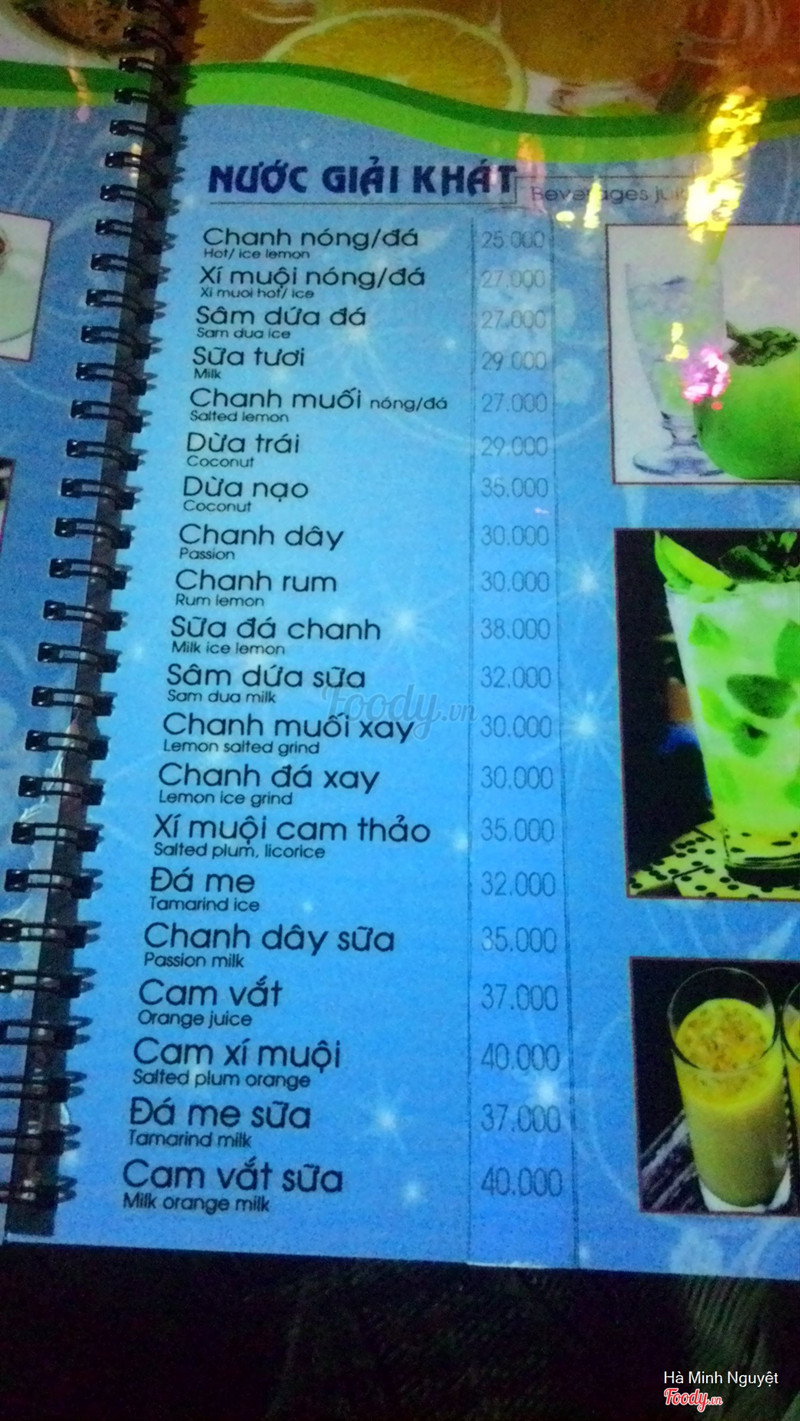 NƯỚC GIẢI KHÁT Beverages juice
Chanh nóng/đá 25.000
Hot/ ice lemon
Xí muội nóng/đá 27.000
Xi muoi hot/ ice
Sâm dứa đá 27.000
Sam dua ice
Sữa tươi 29.000
Milk
Chanh muối nóng/đá 27.000
Salted lemon
Dừa trái 29.000
Coconut
Dừa nạo 35.000
Coconut
Chanh dây 30.000
Passion
Chanh rum 30.000
Rum lemon
Sữa đá chanh 38.000
Milk ice lemon
Sâm dứa sữa 32.000
Sam dua milk
Foody.vn
Chanh muối xay 30.000
Lemon salted grind
Chanh đá xay 30.000
Lemon ice grind
Xí muội cam thảo 35.000
Salted plum, licorice
Đá me 32.000
Tamarind ice
Chanh dây sữa 35.000
Passion milk
Cam vắt 37.000
Orange juice
Cam xí muội 40.000
Salted plum orange
Đá me sữa 37.000
Tamarind milk
Cam vắt sữa 40.000
Milk orange milk
Hà Minh Nguyệt
Foody.vn